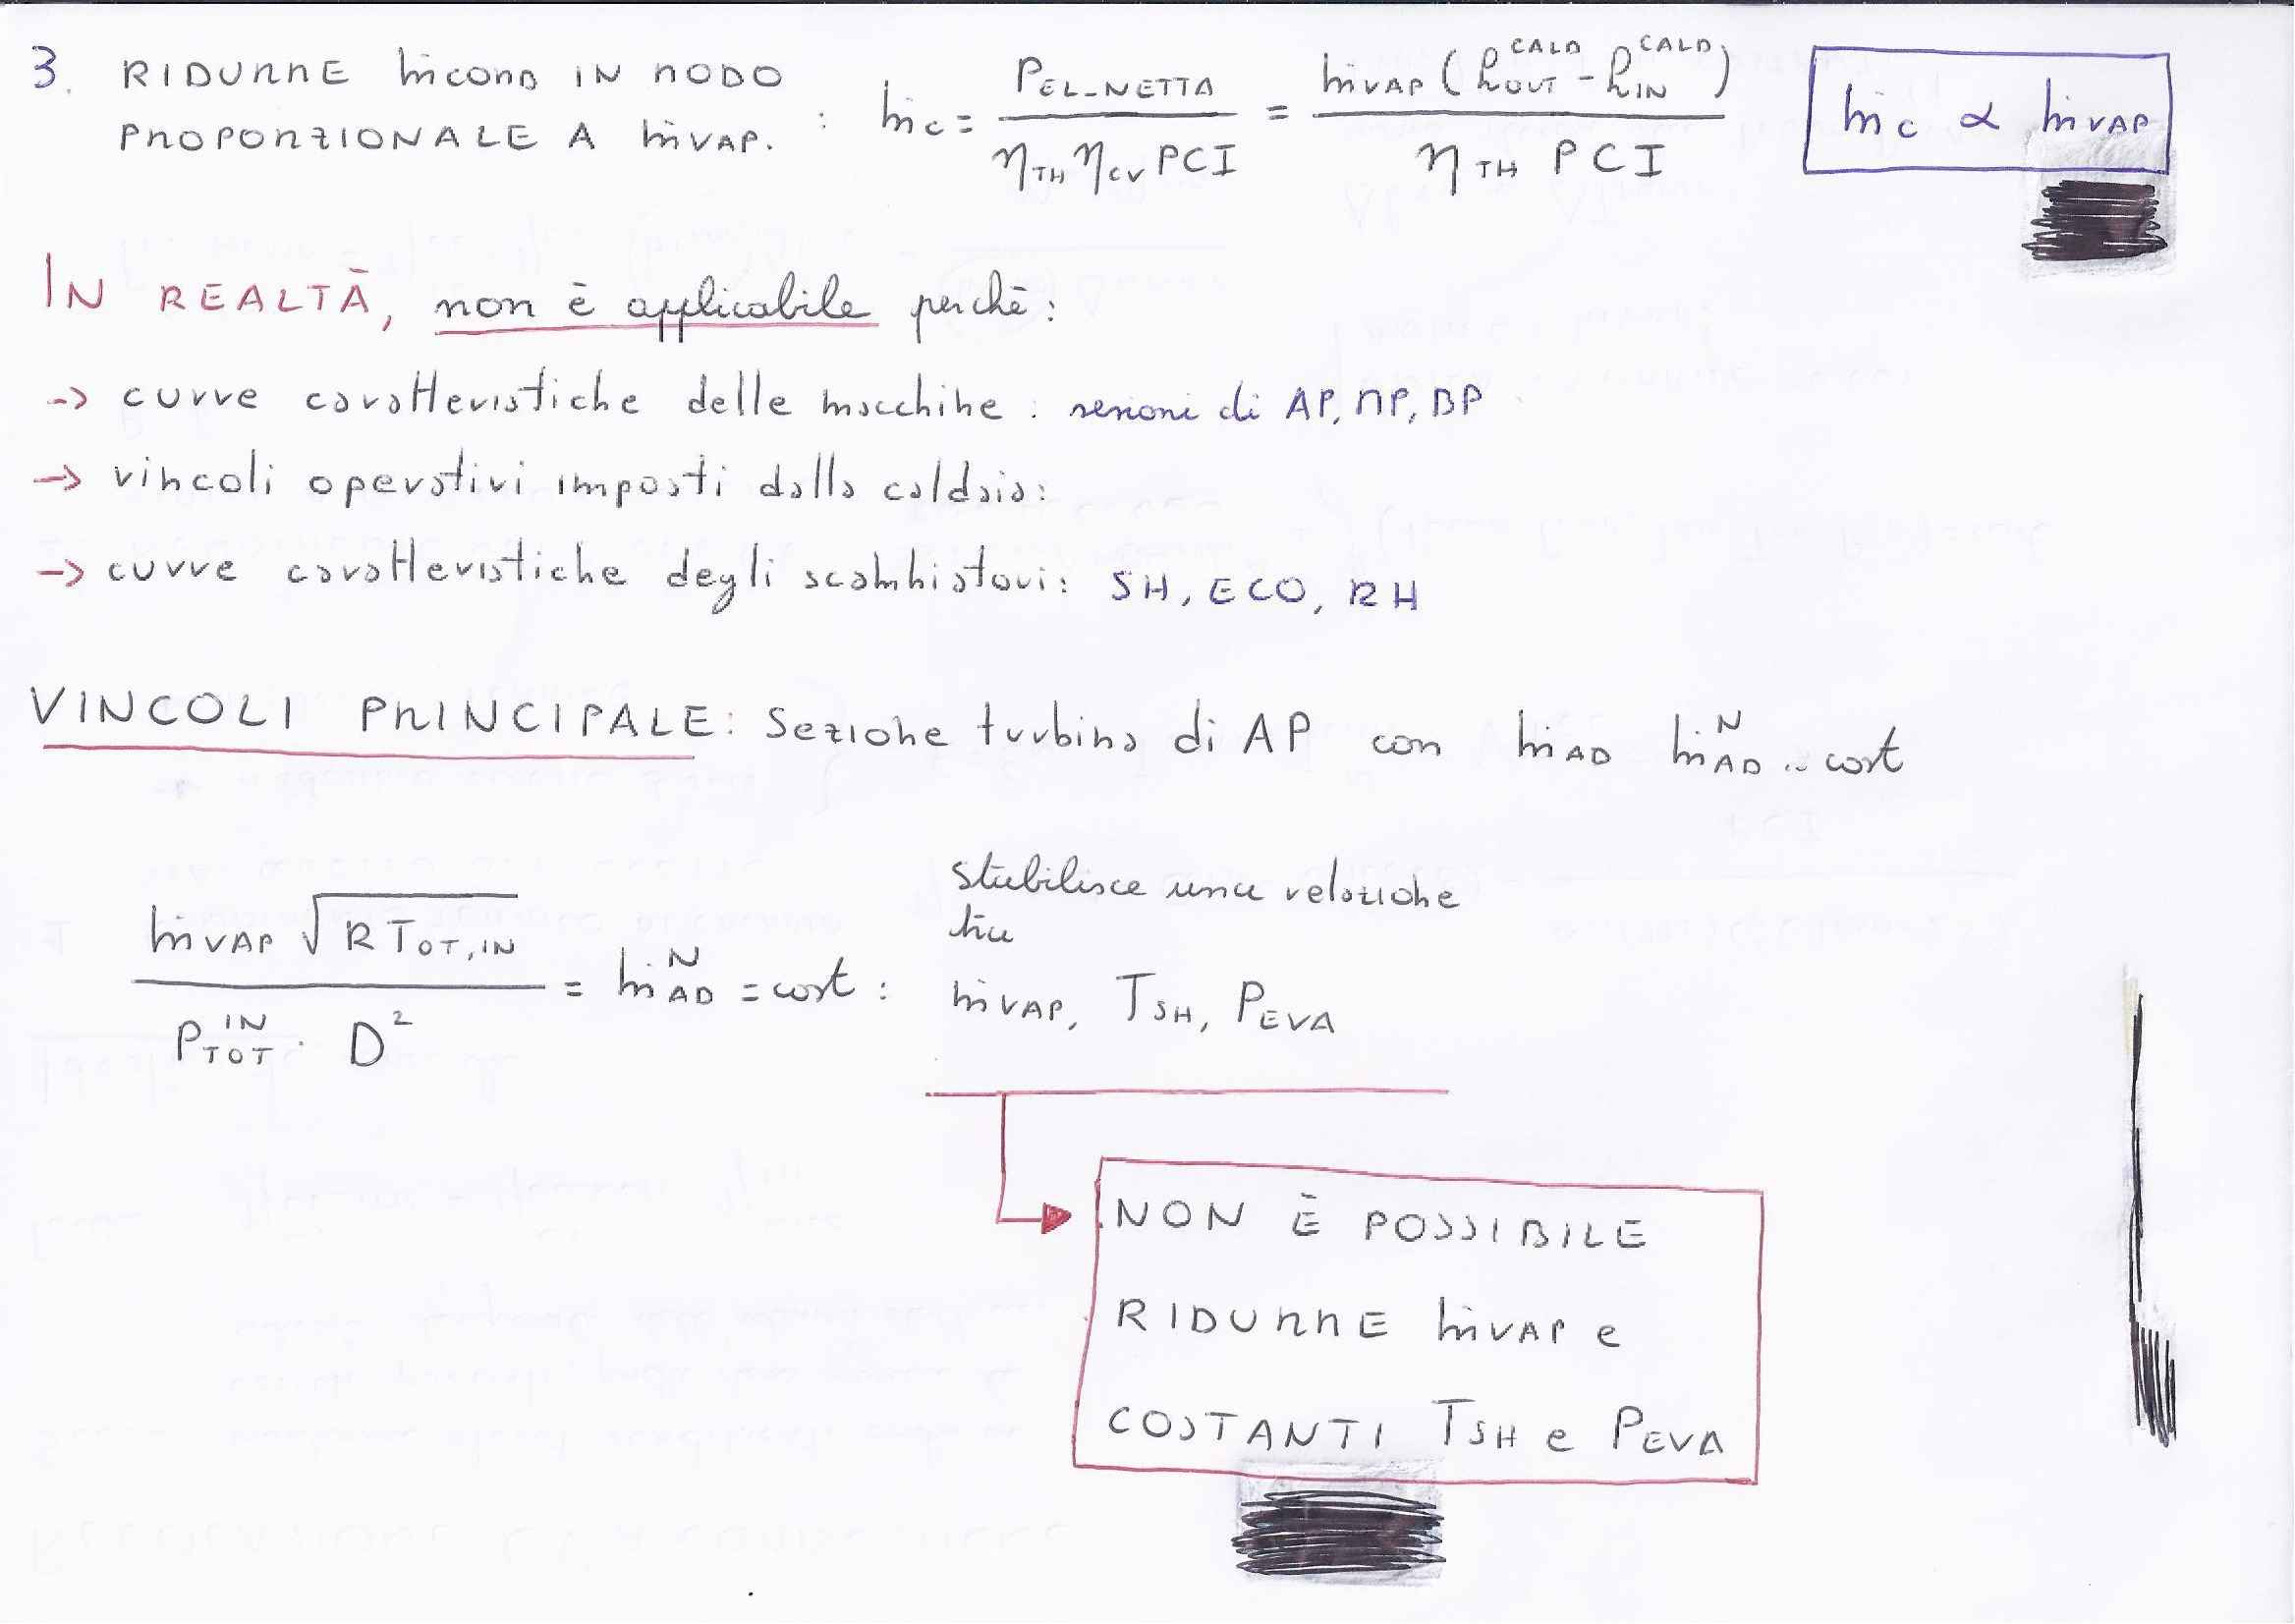 3. RIDURRE ṁCOMB IN MODO
PROPORZIONALE A ṁVAP. : ṁc = PEL_NETTA / (ηTH ηCV PCI) = ṁVAP (hOUT^CALD - hIN^CALD) / (ηTH PCI)
ṁc ∝ ṁVAP
IN REALTÀ, non è applicabile perchè:
-> curve caratteristiche delle macchine : sezioni di AP, MP, BP
-> vincoli operativi imposti dalla caldaia:
-> curve caratteristiche degli scambiatori: SH, ECO, RH
VINCOLI PRINCIPALE: Sezione turbina di AP con ṁAD ṁAD^N .. cost
ṁVAP √(R TOT,IN) / (PTOT^IN · D²) = ṁAD^N = cost :
stabilisce una relazione
tra
ṁVAP, TSH, PEVA
NON È POSSIBILE
RIDURRE ṁVAP e
COSTANTI TSH e PEVA